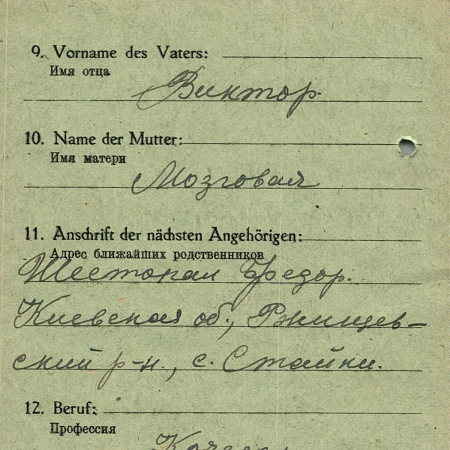 9. Vorname des Vaters:
Имя отца
Виктор.
10. Name der Mutter:
Имя матери
Мозговая
11. Anschrift der nächsten Angehörigen:
Адрес ближайших родственников
Шестопал Федор.
Киевская об., Ржищев-
ский р-н., с. Стайки.
12. Beruf:
Профессия